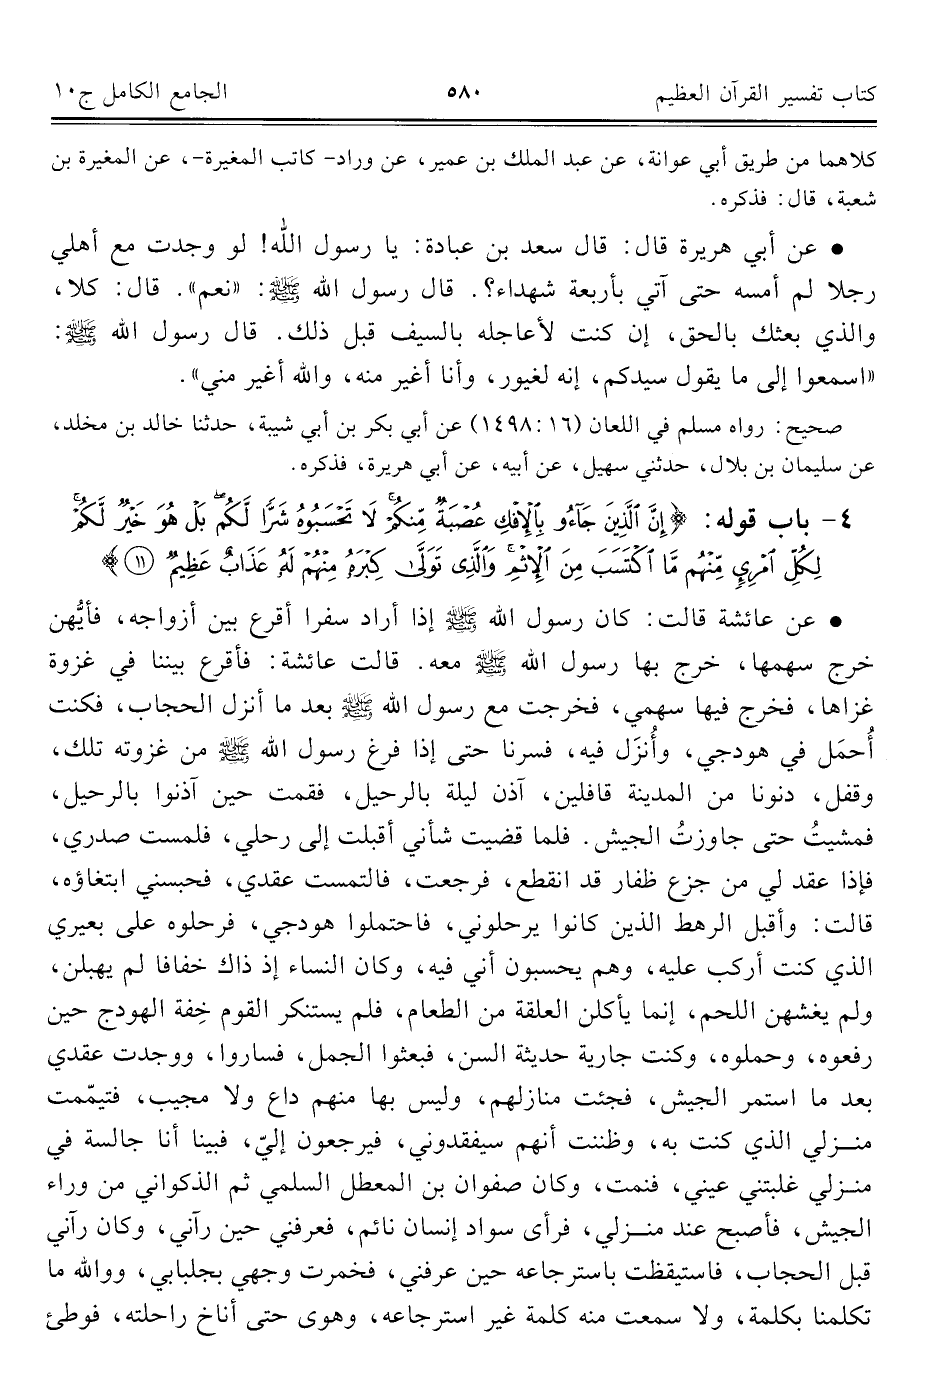 كتاب تفسير القرآن العظيم ٥٨٠ الجامع الكامل ج١٠
كلاهما من طريق أبي عوانة، عن عبد الملك بن عمير، عن وراد- كاتب المغيرة-، عن المغيرة بن
شعبة، قال: فذكره.
• عن أبي هريرة قال: قال سعد بن عبادة: يا رسول الله! لو وجدت مع أهلي
رجلا لم أمسه حتى آتي بأربعة شهداء؟. قال رسول الله ﷺ: «نعم». قال: كلا،
والذي بعثك بالحق، إن كنت لأعاجله بالسيف قبل ذلك. قال رسول الله ﷺ:
«اسمعوا إلى ما يقول سيدكم، إنه لغيور، وأنا أغير منه، والله أغير مني».
صحيح: رواه مسلم في اللعان (١٦: ١٤٩٨) عن أبي بكر بن أبي شيبة، حدثنا خالد بن مخلد،
عن سليمان بن بلال، حدثني سهيل، عن أبيه، عن أبي هريرة، فذكره.
٤- باب قوله: ﴿إِنَّ ٱلَّذِينَ جَآءُو بِٱلۡإِفۡكِ عُصۡبَةٞ مِّنكُمۡۚ لَا تَحۡسَبُوهُ شَرّٗا لَّكُمۖ بَلۡ هُوَ خَيۡرٞ لَّكُمۡۚ
لِكُلِّ ٱمۡرِيٕٖ مِّنۡهُم مَّا ٱكۡتَسَبَ مِنَ ٱلۡإِثۡمِۚ وَٱلَّذِي تَوَلَّىٰ كِبۡرَهُۥ مِنۡهُمۡ لَهُۥ عَذَابٌ عَظِيمٞ ⑪﴾
• عن عائشة قالت: كان رسول الله ﷺ إذا أراد سفرا أقرع بين أزواجه، فأيُّهن
خرج سهمها، خرج بها رسول الله ﷺ معه. قالت عائشة: فأقرع بيننا في غزوة
غزاها، فخرج فيها سهمي، فخرجت مع رسول الله ﷺ بعد ما أنزل الحجاب، فكنت
أُحمَل في هودجي، وأُنزَل فيه، فسرنا حتى إذا فرغ رسول الله ﷺ من غزوته تلك،
وقفل، دنونا من المدينة قافلين، آذن ليلة بالرحيل، فقمت حين آذنوا بالرحيل،
فمشيتُ حتى جاوزتُ الجيش. فلما قضيت شأني أقبلت إلى رحلي، فلمست صدري،
فإذا عقد لي من جزع ظفار قد انقطع، فرجعت، فالتمست عقدي، فحبسني ابتغاؤه،
قالت: وأقبل الرهط الذين كانوا يرحلوني، فاحتملوا هودجي، فرحلوه على بعيري
الذي كنت أركب عليه، وهم يحسبون أني فيه، وكان النساء إذ ذاك خفافا لم يهبلن،
ولم يغشهن اللحم، إنما يأكلن العلقة من الطعام، فلم يستنكر القوم خِفة الهودج حين
رفعوه، وحملوه، وكنت جارية حديثة السن، فبعثوا الجمل، فساروا، ووجدت عقدي
بعد ما استمر الجيش، فجئت منازلهم، وليس بها منهم داع ولا مجيب، فتيمّمت
منــزلي الذي كنت به، وظننت أنهم سيفقدوني، فيرجعون إليّ، فبينا أنا جالسة في
منــزلي غلبتني عيني، فنمت، وكان صفوان بن المعطل السلمي ثم الذكواني من وراء
الجيش، فأصبح عند منــزلي، فرأى سواد إنسان نائم، فعرفني حين رآني، وكان رآني
قبل الحجاب، فاستيقظت باسترجاعه حين عرفني، فخمرت وجهي بجلبابي، ووالله ما
تكلمنا بكلمة، ولا سمعت منه كلمة غير استرجاعه، وهوى حتى أناخ راحلته، فوطئ